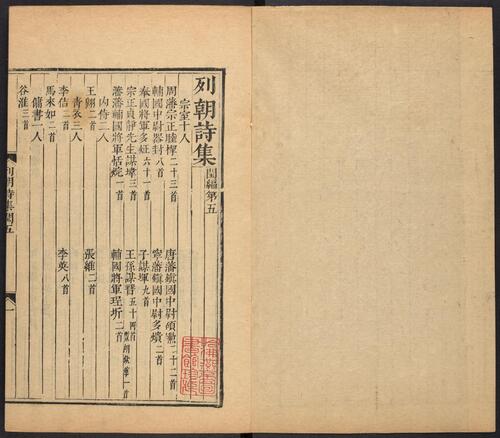 列朝詩集閏編第五
宗室十人
周藩宗正睦㮮二十三首
唐藩鎮國中尉碩爋二十二首
輔國中尉器封八首
寧藩鎮國中尉多熿二首
奉國將軍多炡六十一首
子謀㙔九首
宗正貞靜先生謀㙔三首
王孫謀晉五十四首
瀋藩輔國將軍恬烷一首
輔國將軍珵圻二首
內侍二人
王翱二首
張維二首
青衣三人
李佶二首
李英八首
馬來如二首
傭書一人
谷淮三首
列朝詩集閏五
一